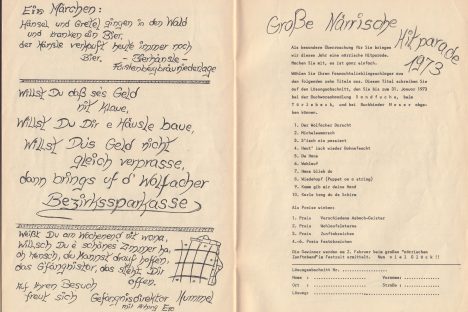 Ein Märchen:
Hänsel und Gretel gingen in den Wald
und tranken ein Bier,
der Hänsle verkauft heute immer noch
Bier. - Bierhänsle -
Fürstenbergbräuniederlage
Willst Du daß ses Geld
nit klaue,
Willst Du Dir e Häusle baue,
Willst Dus Geld nicht
gleich verprasse,
dann brings uf d' Wolfacher
Bezirkssparkasse
Weißt Du am Wochenend nit wona,
Willsch Du e schönes Zimmer ha,
oh Mensch, du kannst drauf hoffen,
das Gfängnistor, das steht Dir
offen.
Auf Ihren Besuch
freut sich Gefängnisdirektor Hummel
Große Närrische
Hitparade
1973
Als besondere Überraschung für Sie bringen
wir dieses Jahr eine närrische Hitparade.
Machen Sie mit, es ist ganz einfach.
Wählen Sie Ihren Fasnachtslieblingsschlager aus
den folgenden zehn Titeln aus. Diesen Titel schreiben Sie
auf den Lösungsabschnitt, den Sie bis zum 31. Januar 1973
bei der Buchverschandlung Sandfuchs, beim
Türlebeck, und bei Buchbinder Moser abge-
ben können.
1. Der Wolfacher Durscht
2. Michelemarsch
3. S'isch nix passiert
4. Heut' isch wieder Bohnefescht
5. De Hans
6. Wohlauf
7. Hans blieb do
8. Wiedehopf (Puppet on a string)
9. Komm gib mir deine Hand
10. Karle heng de do Schirm
Als Preise winken:
1. Preis Verschiedene Asbach-Geister
2. Preis Wohlaufelsterne
3. Preis Zunftabzeichen
4.-6. Preis Festabzeichen
Die Gewinner werden am 2. Februar beim großen "närrischen
Zunftobend" im Festzelt ermittelt. Nun viel Glück !!
Lösungsabschnitt Nr.
Name : Vorname:
Ort : Straße :
Lösung: